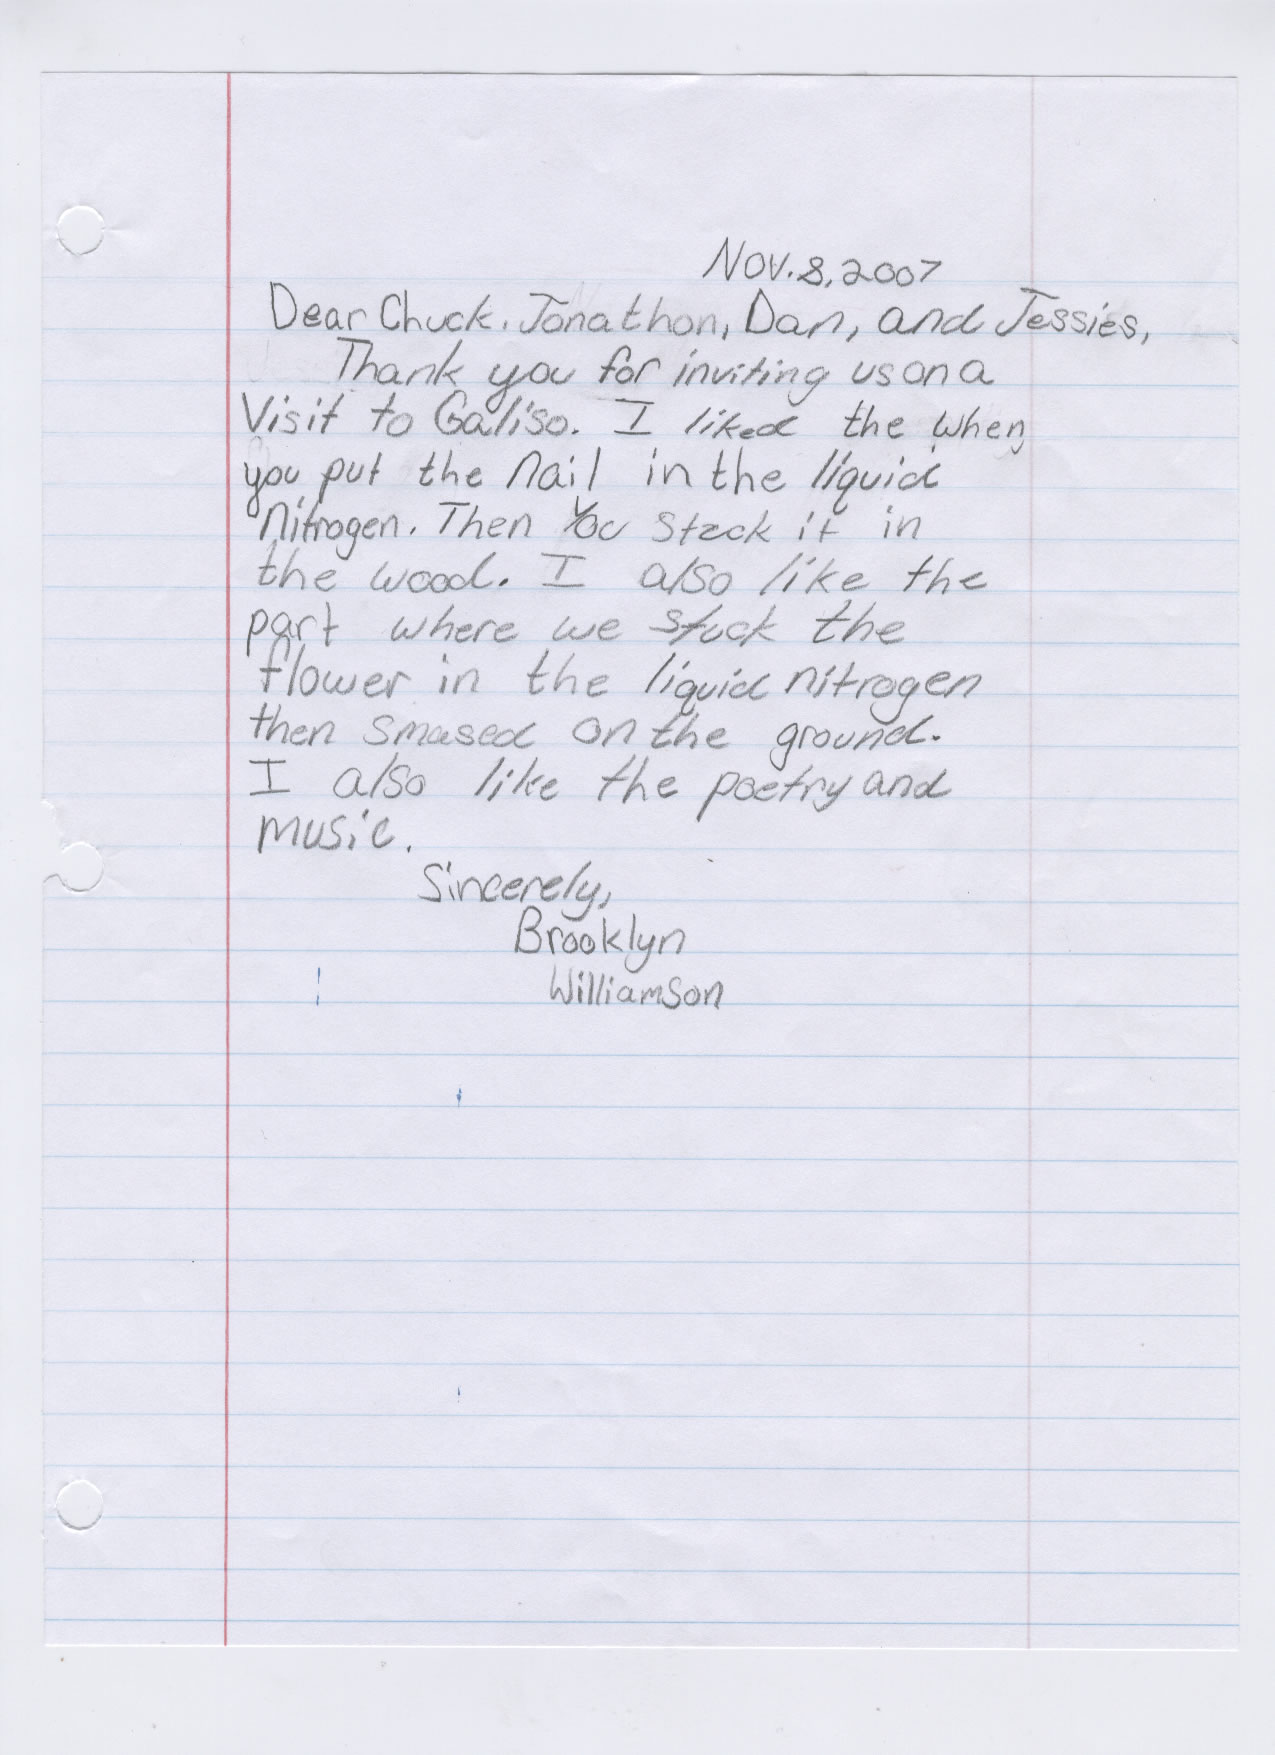 Nov. 8, 2007
Dear Chuck, Jonathon, Dan, and Jessies,
Thank you for inviting us on a
Visit to Galiso. I liked the when
you put the nail in the liquid
Nitrogen. Then You stuck it in
the wood. I also like the
part where we stuck the
flower in the liquid nitrogen
then smased on the ground.
I also like the poetry and
music.
Sincerely,
Brooklyn
Williamson